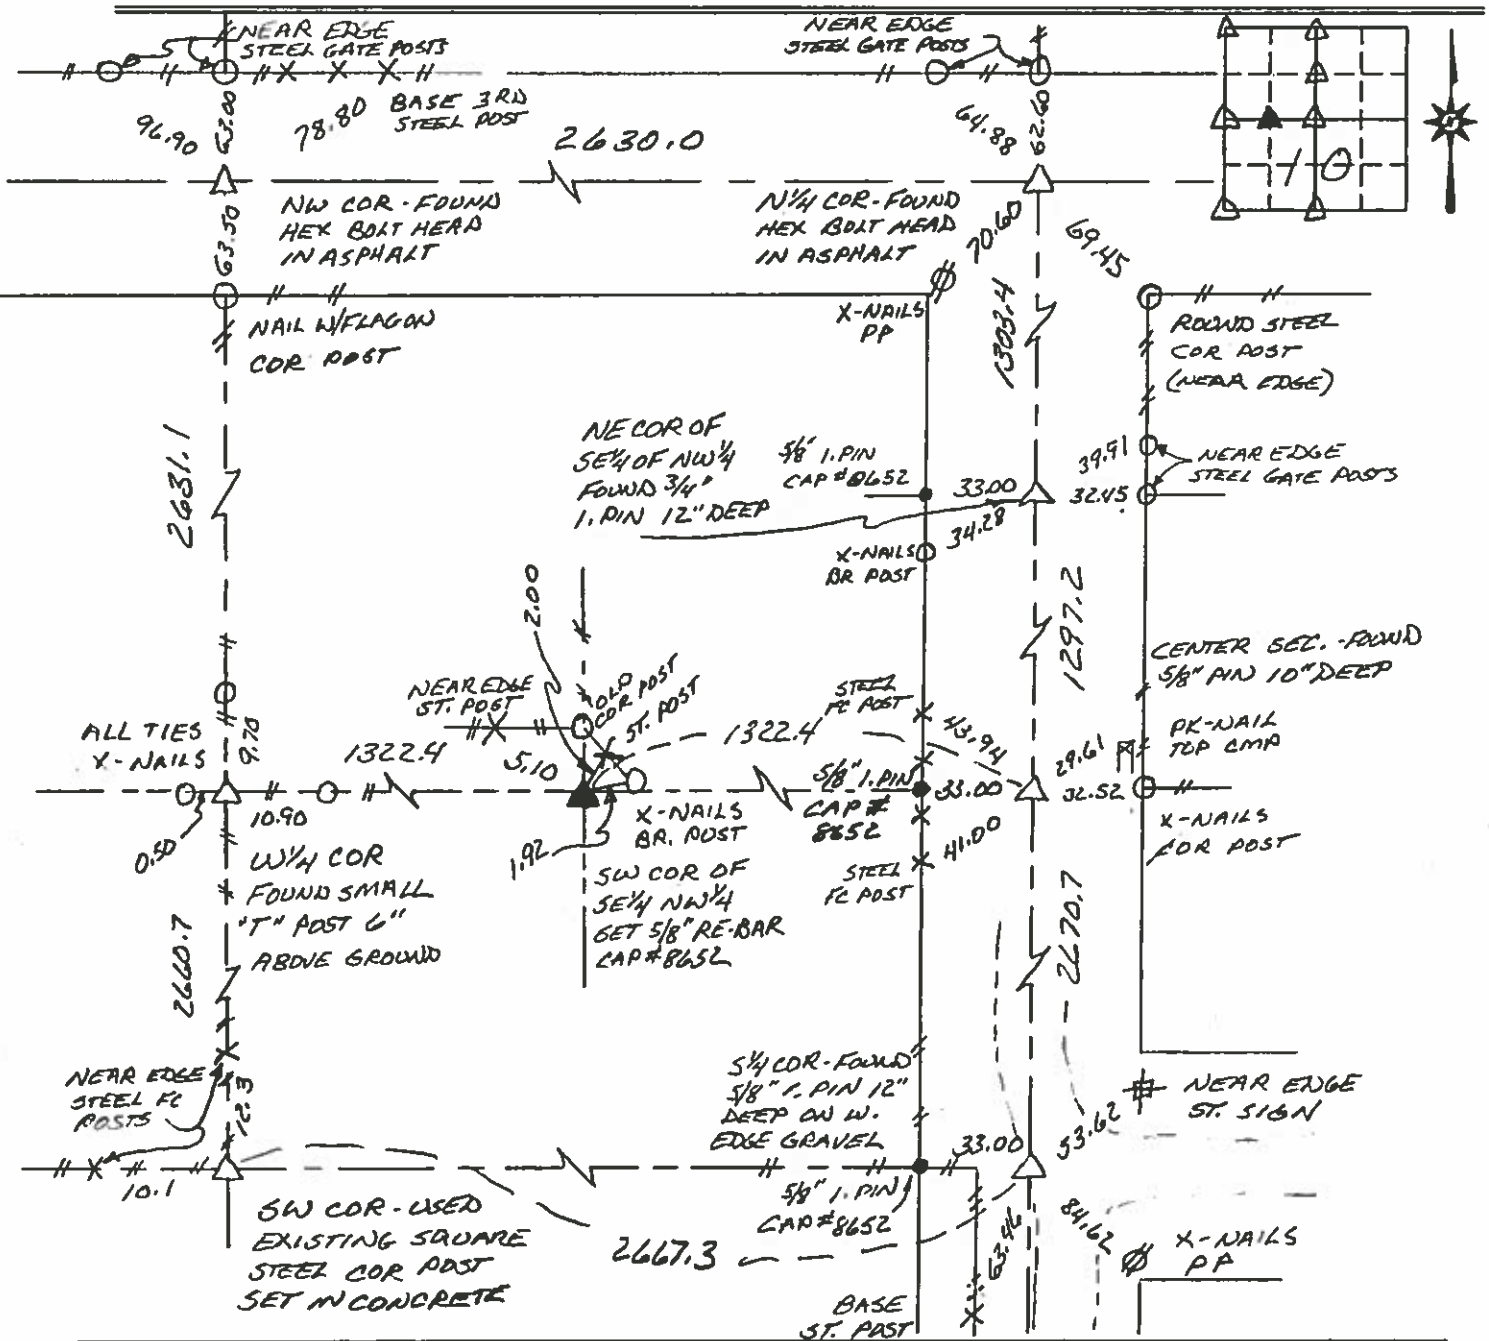 NEAR EDGE
STEEL GATE POSTS
NEAR EDGE
STEEL GATE POSTS
96.90
63.00
78.80
BASE 3RD
STEEL POST
2630.0
64.88
62.60
10
NW COR - FOUND
HEX BOLT HEAD
IN ASPHALT
63.50
N 1/4 COR - FOUND
HEX BOLT HEAD
IN ASPHALT
70.60
69.45
NAIL W/FLAG ON
COR POST
X-NAILS
PP
1303.4
ROUND STEEL
COR POST
(NEAR EDGE)
2631.1
NE COR OF
SE 1/4 OF NW 1/4
FOUND 3/4"
I. PIN 12" DEEP
5/8" I. PIN
CAP #8652
33.00
34.28
39.91
32.45
NEAR EDGE
STEEL GATE POSTS
X-NAILS
BR POST
2.00
1297.2
CENTER SEC. - FOUND
5/8" PIN 10" DEEP
NEAR EDGE
ST. POST
OLD
COR POST
ST. POST
STEEL
FC POST
ALL TIES
X-NAILS
9.70
1322.4
5.10
1322.4
43.94
29.61
PK-NAIL
TOP CMP
5/8" I. PIN
CAP #
8652
33.00
32.52
0.50
10.90
1.92
X-NAILS
BR. POST
41.00
X-NAILS
COR POST
W 1/4 COR
FOUND SMALL
"T" POST 6"
ABOVE GROUND
SW COR OF
SE 1/4 NW 1/4
SET 5/8" RE-BAR
CAP #8652
STEEL
FC POST
2660.7
2670.7
NEAR EDGE
STEEL FC
POSTS
12.3
10.1
S 1/4 COR - FOUND
5/8" I. PIN 12"
DEEP ON W.
EDGE GRAVEL
33.00
53.62
NEAR EDGE
ST. SIGN
5/8" I. PIN
CAP #8652
SW COR - USED
EXISTING SQUARE
STEEL COR POST
SET IN CONCRETE
2667.3
63.46
84.62
X-NAILS
PP
BASE
ST. POST